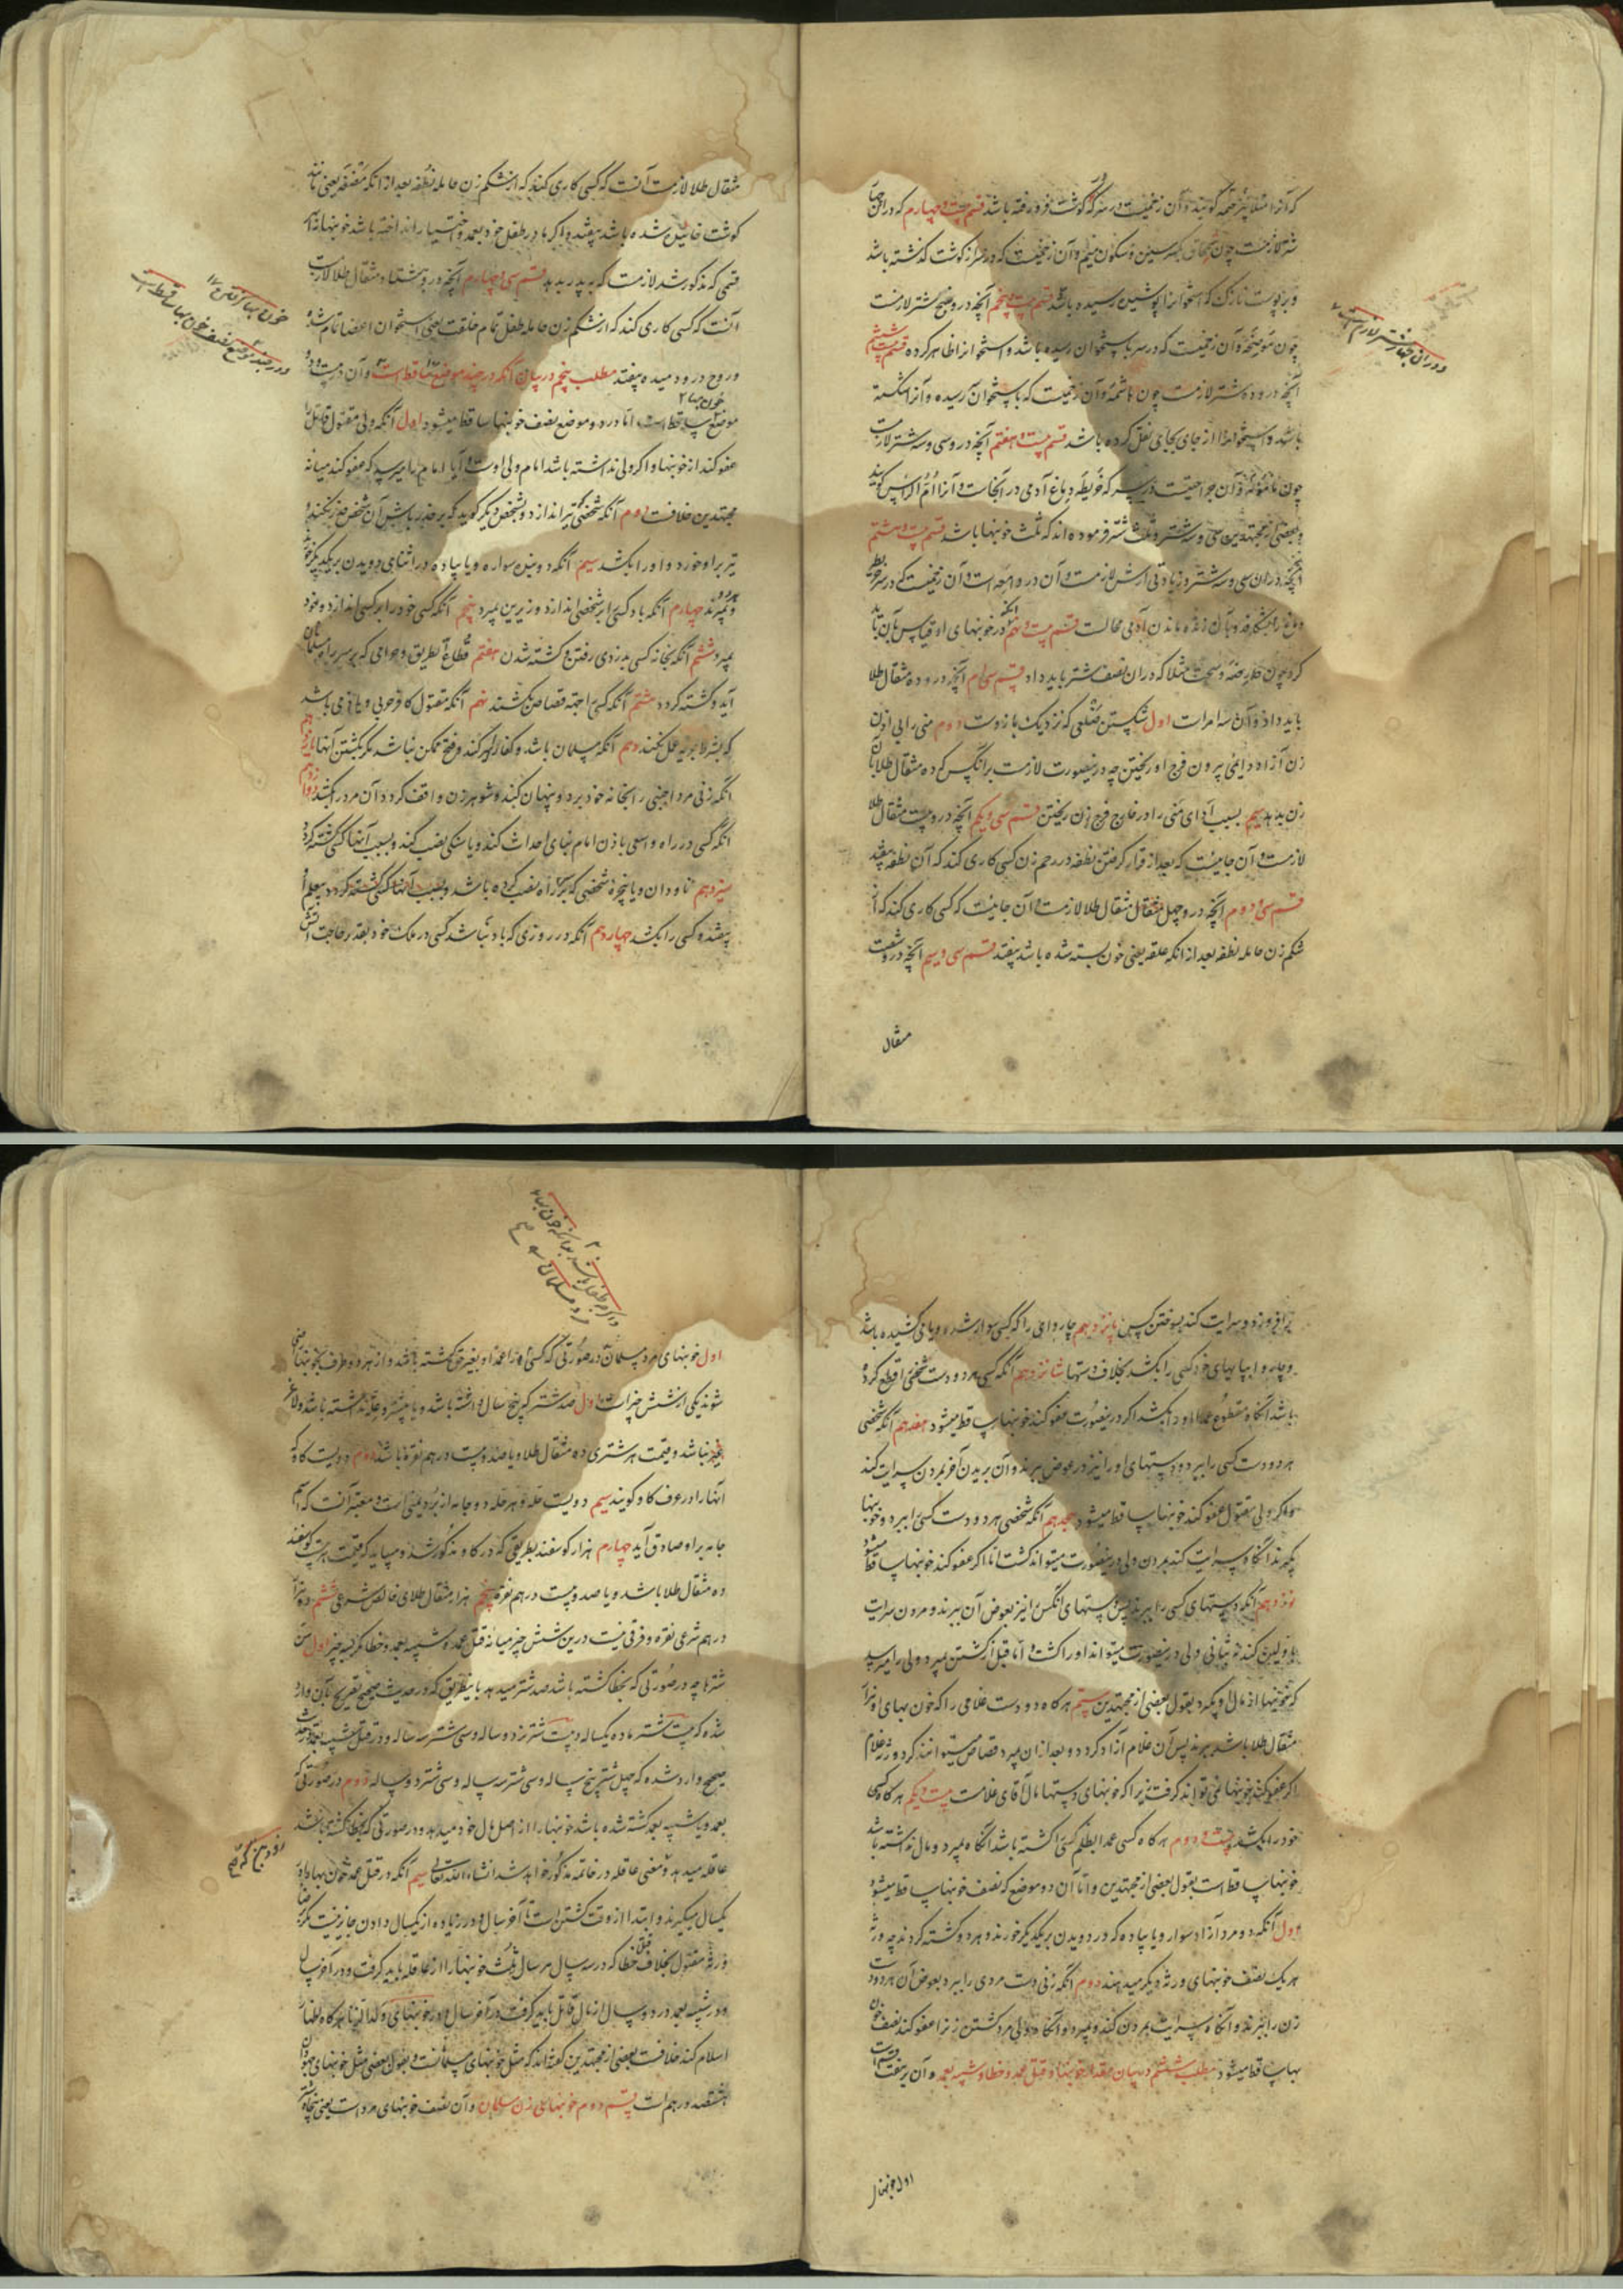 که آنرا متلاحمه گویند و آن زخمیست در سر که در گوشت فرو رفته باشد قسم بیست و چهارم که در آن چهار
شتر لازمست چون سمحاق بکسر سین و سکون میم و آن زخمیست که در سر از گوشت گذشته باشد
و بر پوست نازک که استخوان را پوشیده رسیده باشد قسم بیست و پنجم آنچه در او پنج شتر لازمست
چون موضحه و آن زخمیست که در سر باستخوان رسیده باشد و استخوان را ظاهر کرده قسم بیست و ششم
آنچه در او ده شتر لازمست چون هاشمه و آن زخمیست که باستخوان رسیده و آنرا شکسته
باشد و استخوان را از جای بجای نقل کرده باشد قسم بیست و هفتم آنچه در او سی و سه شتر لازمست
چون مأمومه و آن جراحتیست در سر که خریطه دماغ آدمی در آنجاست و آنرا ام الراس گویند
و بعضی از مجتهدین سی و سه شتر و ثلث شتر فرموده‌اند که ثلث خونبها باشد قسم بیست و هشتم
آنچه در آن سی و سه شتر و زیادتی ارش لازمست و آن در دامغه است و آن زخمیست که در سر خریطه
دماغ را بشکافد و با آن زنده ماندن آدمی محالست قسم بیست و نهم آنکه در خونبهای او قیاس بآن باید
کرد چون حارصه و سمحاق مثلا که در آن نصف شتر باید داد قسم سی‌ام آنچه در او ده مثقال طلا
باید داد و آن سه امرست اول شکستن ضلعی که نزدیک بازوست دوم منی را بی اذن
زن آزاد دایمی بیرون فرج او ریختن چه درینصورت لازمست بر آنکس که ده مثقال طلا بآن
زن بدهد سیم بسبب آدای منی را در خارج فرج زن ریختن قسم سی و یکم آنچه در او بیست مثقال طلا
لازمست و آن جائیست که بعد از قرار گرفتن نطفه در رحم زن کسی کاری کند که آن نطفه بیفتد
قسم سی و دوم آنچه در او چهل مثقال طلا لازمست و آن جائیست که کسی کاری کند که از
شکم زن حامله نطفه بعد از آنکه علقه یعنی خون بسته شده باشد بیفتد قسم سی و سیم آنچه در او شصت
مثقال
مثقال طلا لازمست آنست که کسی کاری کند که از شکم زن حامله نطفه بعد از آنکه مضغه یعنی مانند
گوشت خائیده شده باشد بیفتد و اگر مادر طفل خود بعمد و اختیار انداخته باشد خونبها از
قسمی که مذکور شد لازمست که به پدر بدهد قسم سی و چهارم آنچه در او هشتاد مثقال طلا لازمست
آنست که کسی کاری کند که از شکم زن حامله طفل تمام خلقت یعنی استخوان اعضا تمام شده
و روح در او ندمیده بیفتد مطلب پنجم در بیان آنکه در چند موضع خون بها ساقط است و آن در بیست و دو
موضع ساقط است اما در دو موضع نصف خونبها ساقط میشود اول آنکه ولی مقتول قاتل را
عفو کند از خونبها و اگر ولی نداشته باشد امام ولی اوست و آیا امام را میرسد که عفو کند میانه
مجتهدین خلافست دوم آنکه شخصی تیر اندازد و بشخص دیگر گوید که بر حذر باش آن شخص حذر نکند و
تیر بر او خورد و او را بکشد سیم آنکه دو بین سواره و یا پیاده در اثنای دویدن بر یکدیگر خورند
و بمیرند چهارم آنکه باد کسی را بر شخصی اندازد و زیرین بمیرد پنجم آنکه کسی خود را بر کسی اندازد و خود
بمیرد ششم آنکه بخانه کسی بدزدی رفتن و کشته شدن هفتم قطاع الطریق و حرامی که بر سر راه مسلمانان
آید و کشته گردد هشتم آنکه کسی را جهة قصاص کشند نهم آنکه مقتول کافر حربی و یا ذمی باشد
که بشرط جزیه عمل نکند دهم آنکه مسلمان باشد و کفار او را سپر کنند و فتح ممکن نباشد مگر بکشتن آنها یازدهم
آنکه زنی مرد اجنبی را بخانه خود برد و پنهان کند و شوهر زن واقف گردد آن مرد را بکشد دوازدهم
آنکه کسی در راه واسعی باذن امام بنای احداث کند و یا سنگی نصب کند و بسبب آنها کسی کشته گردد
سیزدهم ناودان و یا پنجره شخصی که بر راه نصب کرده باشد و بسبب آنها کسی کشته گردد
بیفتد و کسی را بکشد چهاردهم آنکه در روزی که باد نباشد کسی در ملک خود بقدر حاجت آتش
بر افروزد و سرایت کند بسوختن کسی پانزدهم چاروائی را که کسی سوار شده و یا می‌کشیده باشد
و چاروا بپایهای خود کسی را بکشد بخلاف دستها شانزدهم آنکه کسی هر دو دست شخصی را قطع کرده
باشد آنگاه مقطوع عمدا او را بکشد اگر درینصورت عفو کند خونبها ساقط میشود هفدهم آنکه شخصی
هر دو دست کسی را ببرد و دستهای او را نیز در عوض ببرند و آن بریدن آخر بمردن سرایت کند
و اگر ولی مقتول عفو کند خونبها ساقط میشود هجدهم آنکه شخصی هر دو دست کسی را ببرد و خونبها
بگیرند آنگاه سرایت کند بمردن ولی درینصورت میتواند کشت اما اگر عفو کند خونبها ساقط میشود
نوزدهم آنکه دستهای کسی را ببرند پس دستهای آنکس را نیز بعوض آن ببرند و مردن سرایت
باولین کند نه بثانی ولی درینصورت میتواند او را کشت اما قبل از کشتن بمیرد ولی را میرسد
که خونبها از مال او بگیرد بقول بعضی از مجتهدین بیستم هرگاه دو دست غلامی را که خون بهای او هزار
مثقال طلا باشد ببرند پس آن غلام آزاد گردد و بعد از آن بمیرد قصاص میتوانند کرد ورثه غلام
اگر عفو کنند خونبها نمی‌تواند گرفت زیرا که خونبهای دستها مال آقای غلامست بیست و یکم هرگاه کسی
خود را بکشد بیست و دوم هرگاه کسی عمدا بظلم کسی را کشته باشد آنگاه بمیرد و مال نداشته باشد
خونبها ساقط است بقول بعضی از مجتهدین و اما آن دو موضع که نصف خونبها ساقط میشود
اول آنکه دو مرد آزاد سوار و یا پیاده که در دویدن بر یکدیگر خورند و هر دو کشته گردند چه ورثه
هر یک نصف خونبهای ورثه دیگر میدهند دوم آنکه زنی دست مردی را ببرد بعوض آن هر دو دست
زن را ببرند و آنگاه سرایت بمردن کند و بمیرد و آنگاه ولی مرد کشتن زن را عفو کند نصف خون
بها ساقط میشود مطلب ششم در بیان مقدار خونبها و قتل عمد و خطا و شبیه بعمد و آن بر هفت قسم است
اول خونبهای
اول خونبهای مرد مسلمان در صورتی که کسی او را عمدا و بغیر حق کشته باشد و از هر دو طرف بخونبها راضی
شوند یکی از شش چیز است اول صد شتر که پنج سال داشته باشد و یا بیشتر و علت نداشته باشد و لاغر
نیز نباشد و قیمت هر شتری ده مثقال طلا و یا صد و بیست درهم نقره باشد دوم دویست گاو که
آنها را در عرف گاو گویند سیم دویست حله و هر حله دو جامه از برد یمنی است و معتبر آنست که اسم
جامه بر او صادق آید چهارم هزار گوسفند بطریقی که در گاو مذکور شد و میباید که قیمت هر بیست گوسفند
ده مثقال طلا باشد و یا صد و بیست درهم نقره پنجم هزار مثقال طلای خالص شرعی ششم ده هزار
درهم شرعی نقره و فرقی نیست درین شش چیز میانه قتل عمد و شبیه بعمد و خطا مگر بسه چیز اول سن
شتر ها چه در صورتی که بخطا کشته باشد صد شتر میدهد باینطریق که در حدیث صحیح تصریح بآن وارد
شده که بیست شتر ماده یکساله و بیست شتر نر دو ساله و سی شتر سه ساله و در قتل شبیه بعمد در حدیث
صحیح وارد شده که چهل شتر پنج ساله و سی شتر سه ساله و سی شتر دو ساله دوم در صورتی که
بعمد و یا شبیه بعمد کشته شده باشد خونبها را از اصل مال خود میدهد و در صورتی که بخطا کشته باشد
عاقله میدهد و معنی عاقله در خاتمه مذکور خواهد شد انشاء الله تعالی سیم آنکه در قتل عمد خون بها را در
یکسال میگیرند و ابتدا از وقت کشتن است تا آخر سال و در زیاده از یکسال دادن جایز نیست مگر برضا
ورثه مقتول بخلاف قتل خطا که در سه سال هر سال ثلث خونبها را از عاقله باید گرفت و در آخر سال
و در شبیه بعمد در دو سال از مال قاتل باید گرفت در آخر سال و در خونبهای ولد الزنا هرگاه اظهار
اسلام کند خلافست بعضی از مجتهدین گفته‌اند که مثل خونبهای مسلمانست و بقول بعضی مثل خونبهای جهودان
هشتصد درهم است قسم دوم خونبهای زن مسلمان و آن نصف خونبهای مرد است یعنی پنجاه شتر